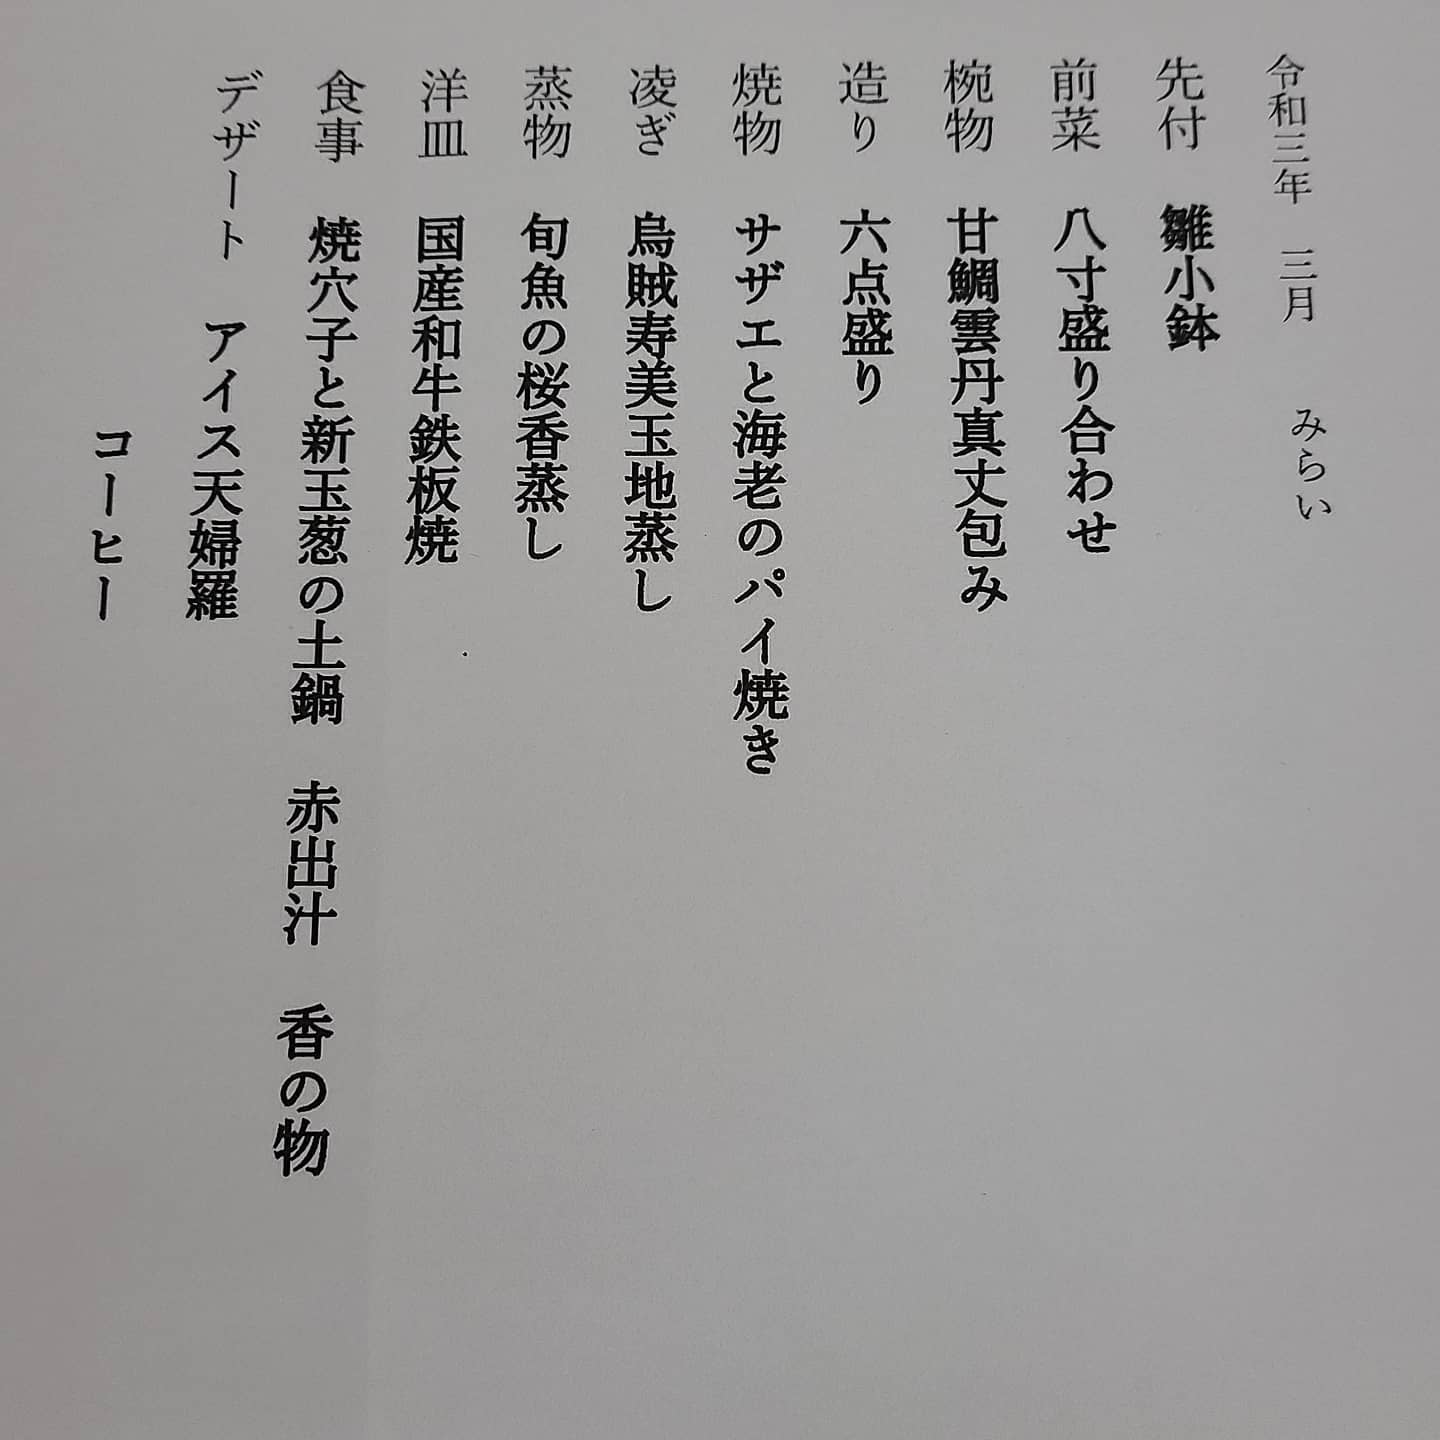 令和三年　三月　みらい
先付　雛小鉢
前菜　八寸盛り合わせ
椀物　甘鯛雲丹真丈包み
造り　六点盛り
焼物　サザエと海老のパイ焼き
凌ぎ　烏賊寿美玉地蒸し
蒸物　旬魚の桜香蒸し
洋皿　国産和牛鉄板焼
食事　焼穴子と新玉葱の土鍋　赤出汁　香の物
デザート　アイス天婦羅
コーヒー